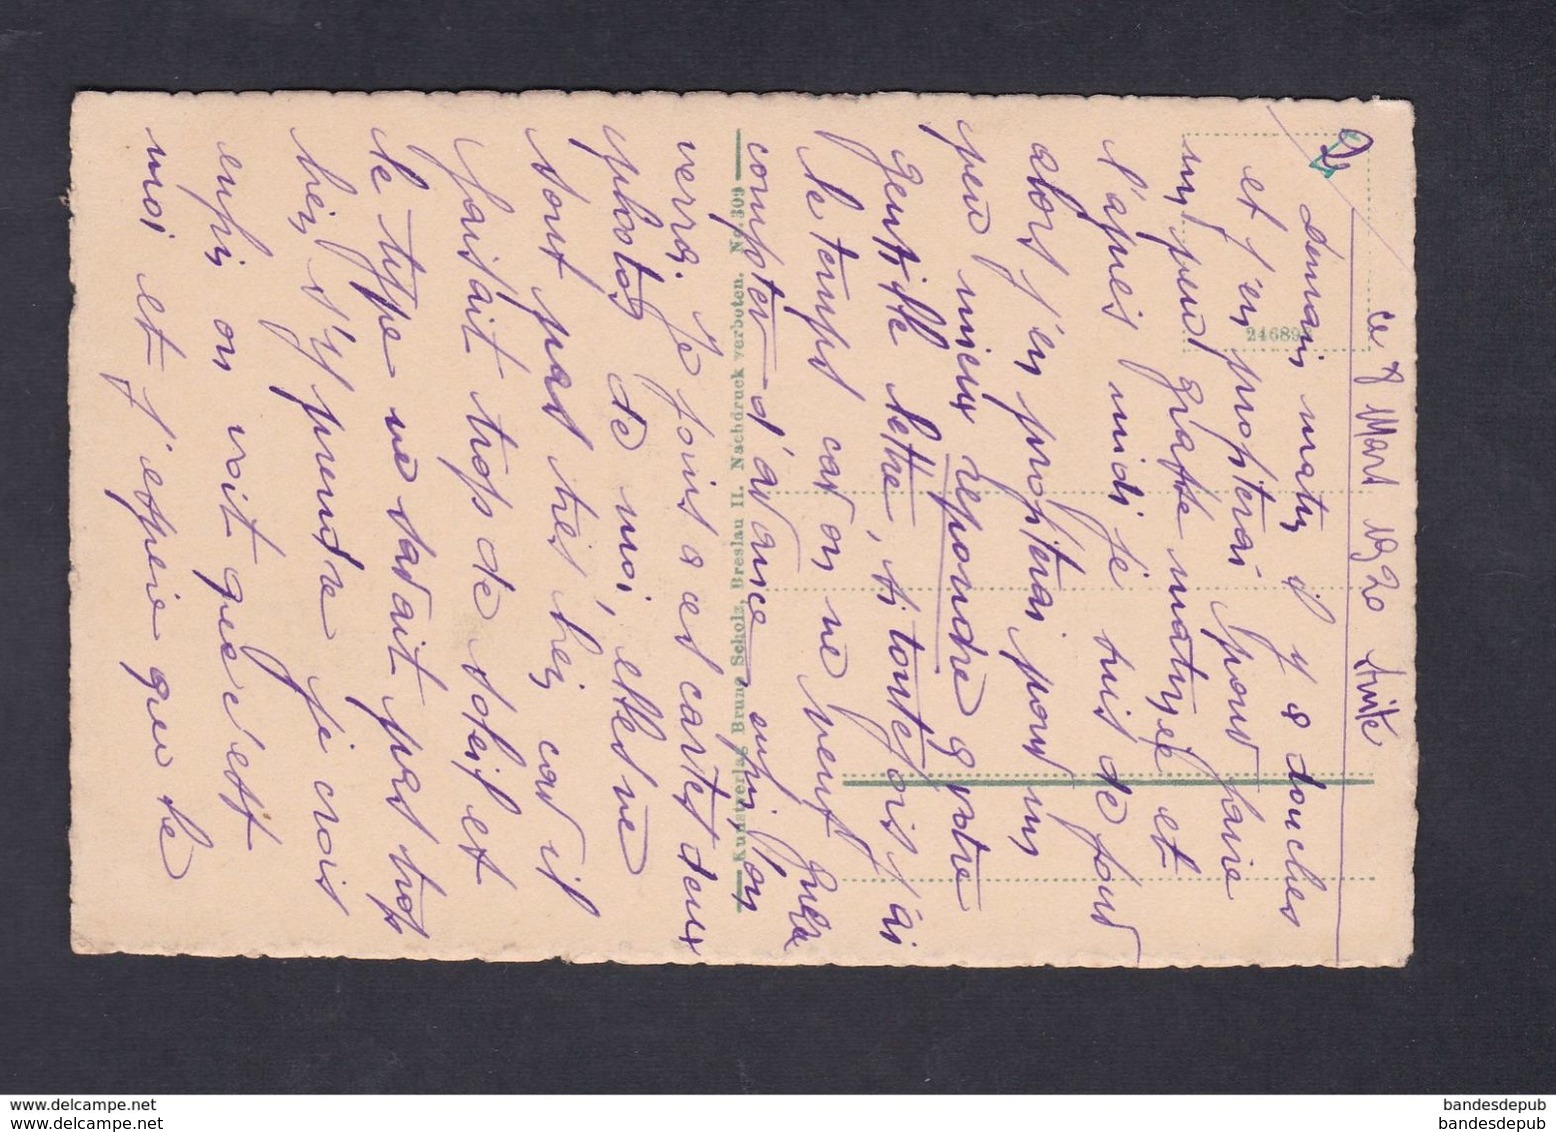 ce 8 Mars 1920 suite
2)
demain matin il y a douches
et j'en profiterai pour faire
un peu grasse matinée et
l'après midi je suis de jour
alors j'en profiterai pour un
peu mieux répondre a votre
gentille lettre, si toutefois j'ai
le temps car on ne peut guère
compter d'avance, enfin l'on
verra, je joins a ces cartes deux
photos de moi, elles ne
sont pas très bien car il
faisait trop de soleil et
le type ne savait pas trop
bien s'y prendre je crois
enfin on voit que c'est
moi et j'espère que le
246898
Kunstverlag Bruno Scholz, Breslau II. Nachdruck verboten. No. 309
www.delcampe.net
www.delcampe.net
bandesdepub
bandesdepub